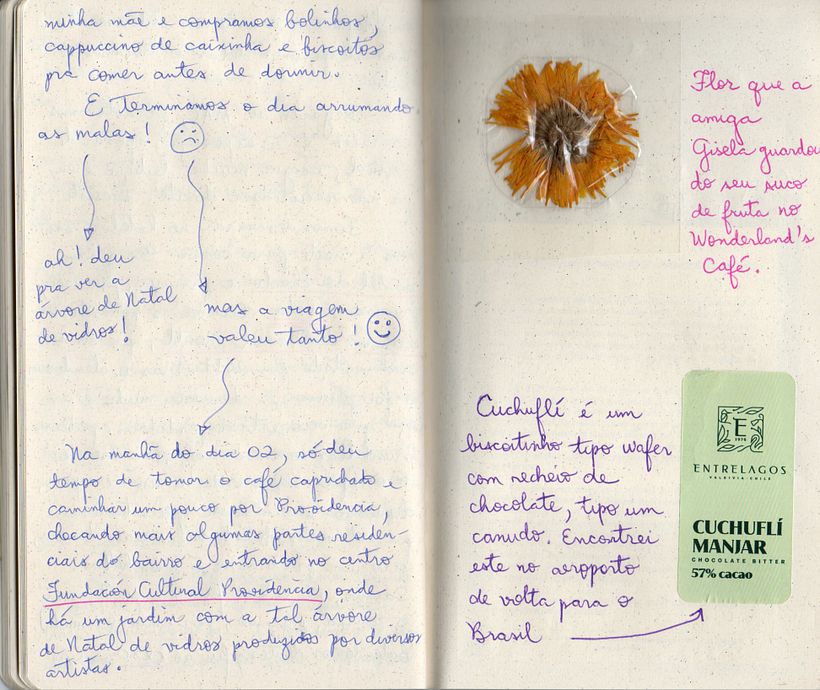 minha mãe e compramos bolinhos,
cappuccino de caixinha e biscoitos
pra comer antes de dormir.
E terminamos o dia arrumando
as malas!
ah! deu
pra ver a
árvore de Natal
de vidros!
mas a viagem
valeu tanto!
Na manhã do dia 02, só deu
tempo de tomar o café caprichado e
caminhar um pouco por Providencia,
checando mais algumas partes residen-
ciais do bairro e entrando no centro
Fundación Cultural Providencia, onde
há um jardim com a tal árvore
de Natal de vidros produzidos por diversos
artistas.
Flor que a
amiga
Gisela guardou
do seu suco
de fruta no
Wonderland's
Café.
Cuchuflí é um
biscoitinho tipo wafer
com recheio de
chocolate, tipo um
canudo. Encontrei
este no aeroporto
de volta para o
Brasil
E
1976
ENTRELAGOS
VALDIVIA·CHILE
CUCHUFLÍ
MANJAR
CHOCOLATE BITTER
57% cacao